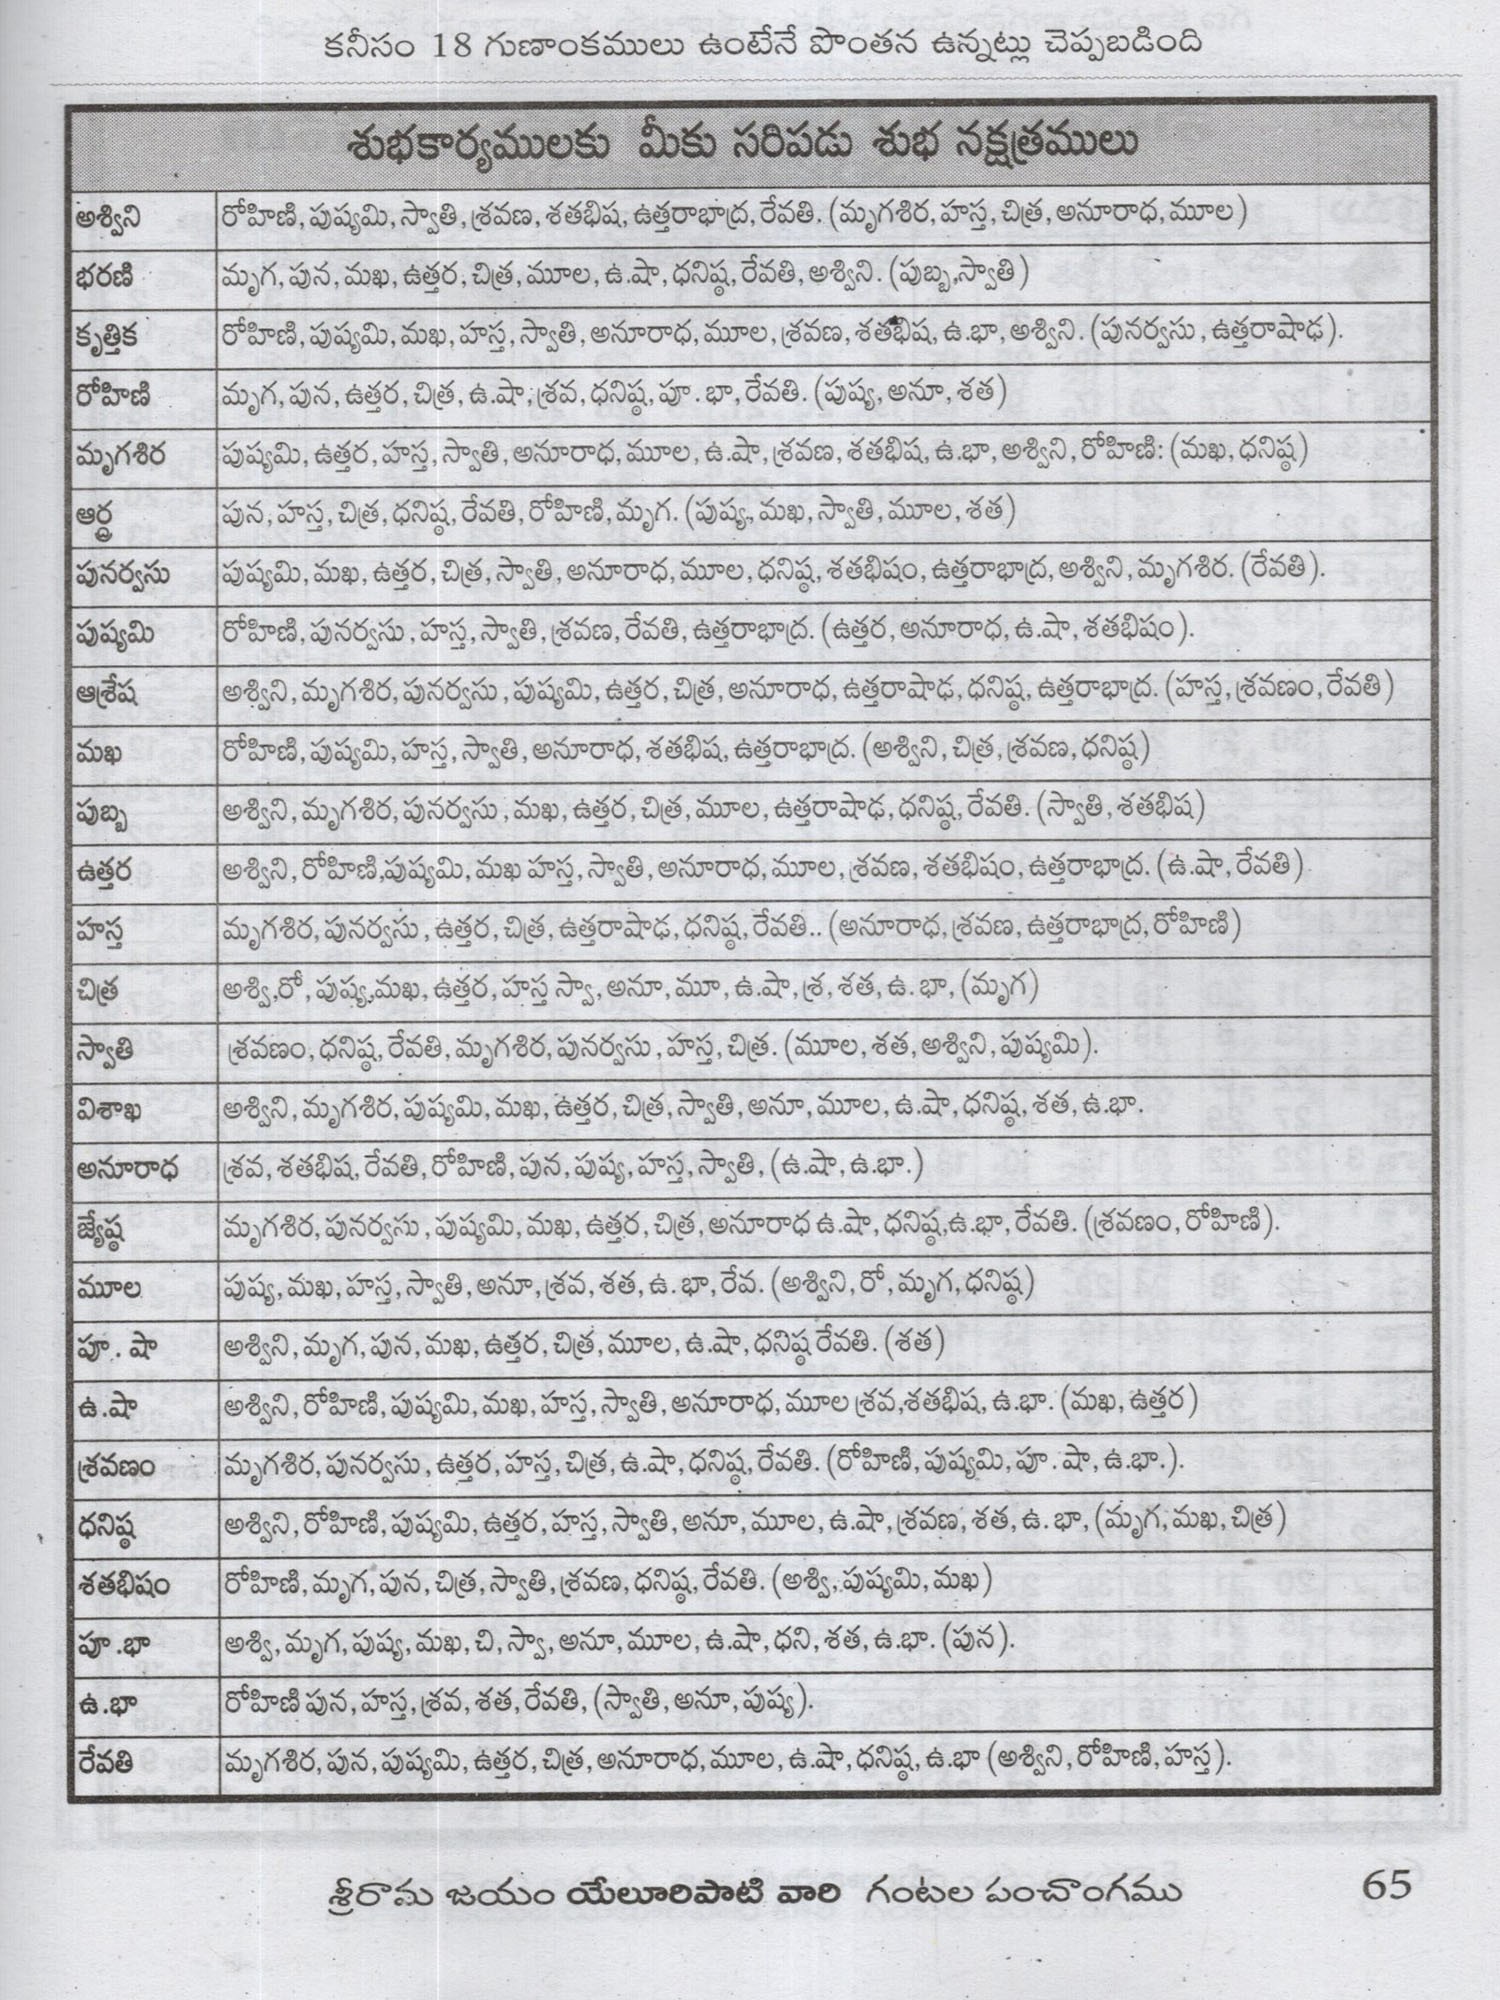 కనీసం 18 గుణాంకములు ఉంటేనే పొంతన ఉన్నట్లు చెప్పబడింది
శుభకార్యములకు మీకు సరిపడు శుభ నక్షత్రములు
అశ్విని రోహిణి, పుష్యమి, స్వాతి, శ్రవణ, శతభిష, ఉత్తరాభాద్ర, రేవతి. (మృగశిర, హస్త, చిత్ర, అనూరాధ, మూల)
భరణి మృగ, పున, మఖ, ఉత్తర, చిత్ర, మూల, ఉ.షా, ధనిష్ఠ, రేవతి, అశ్విని. (పుబ్బ,స్వాతి)
కృత్తిక రోహిణి, పుష్యమి, మఖ, హస్త, స్వాతి, అనూరాధ, మూల, శ్రవణ, శతభిష, ఉ.భా, అశ్విని. (పునర్వసు, ఉత్తరాషాఢ).
రోహిణి మృగ, పున, ఉత్తర, చిత్ర, ఉ.షా, శ్రవ, ధనిష్ఠ, పూ. భా, రేవతి. (పుష్య, అనూ, శత)
మృగశిర పుష్యమి, ఉత్తర, హస్త, స్వాతి, అనూరాధ, మూల, ఉ.షా, శ్రవణ, శతభిష, ఉ.భా, అశ్విని, రోహిణి: (మఖ, ధనిష్ఠ)
ఆర్ద్ర పున, హస్త, చిత్ర, ధనిష్ఠ, రేవతి, రోహిణి, మృగ. (పుష్య, మఖ, స్వాతి, మూల, శత)
పునర్వసు పుష్యమి, మఖ, ఉత్తర, చిత్ర, స్వాతి, అనూరాధ, మూల, ధనిష్ఠ, శతభిషం, ఉత్తరాభాద్ర, అశ్విని, మృగశిర. (రేవతి).
పుష్యమి రోహిణి, పునర్వసు, హస్త, స్వాతి, శ్రవణ, రేవతి, ఉత్తరాభాద్ర. (ఉత్తర, అనూరాధ, ఉ.షా, శతభిషం).
ఆశ్రేష అశ్విని, మృగశిర, పునర్వసు, పుష్యమి, ఉత్తర, చిత్ర, అనూరాధ, ఉత్తరాషాఢ, ధనిష్ఠ, ఉత్తరాభాద్ర. (హస్త, శ్రవణం, రేవతి)
మఖ రోహిణి, పుష్యమి, హస్త, స్వాతి, అనూరాధ, శతభిష, ఉత్తరాభాద్ర. (అశ్విని, చిత్ర, శ్రవణ, ధనిష్ఠ)
పుబ్బ అశ్విని, మృగశిర, పునర్వసు, మఖ, ఉత్తర, చిత్ర, మూల, ఉత్తరాషాఢ, ధనిష్ఠ, రేవతి. (స్వాతి, శతభిష)
ఉత్తర అశ్విని, రోహిణి,పుష్యమి, మఖ హస్త, స్వాతి, అనూరాధ, మూల, శ్రవణ, శతభిషం, ఉత్తరాభాద్ర. (ఉ.షా, రేవతి)
హస్త మృగశిర, పునర్వసు, ఉత్తర, చిత్ర, ఉత్తరాషాఢ, ధనిష్ఠ, రేవతి.. (అనూరాధ, శ్రవణ, ఉత్తరాభాద్ర, రోహిణి)
చిత్ర అశ్వి,రో, పుష్య,మఖ, ఉత్తర, హస్త స్వా, అనూ, మూ, ఉ.షా, శ్ర, శత, ఉ. భా, (మృగ)
స్వాతి శ్రవణం, ధనిష్ఠ, రేవతి, మృగశిర, పునర్వసు, హస్త, చిత్ర. (మూల, శత, అశ్విని, పుష్యమి).
విశాఖ అశ్విని, మృగశిర, పుష్యమి, మఖ, ఉత్తర, చిత్ర, స్వాతి, అనూ, మూల, ఉ.షా, ధనిష్ఠ, శత, ఉ.భా.
అనూరాధ శ్రవ, శతభిష, రేవతి, రోహిణి, పున, పుష్య, హస్త, స్వాతి, (ఉ.షా, ఉ.భా.)
జ్యేష్ఠ మృగశిర, పునర్వసు, పుష్యమి, మఖ, ఉత్తర, చిత్ర, అనూరాధ ఉ.షా, ధనిష్ఠ,ఉ.భా, రేవతి. (శ్రవణం, రోహిణి).
మూల పుష్య, మఖ, హస్త, స్వాతి, అనూ, శ్రవ, శత, ఉ. భా, రేవ. (అశ్విని, రో, మృగ, ధనిష్ఠ)
పూ. షా అశ్విని, మృగ, పున, మఖ, ఉత్తర, చిత్ర, మూల, ఉ.షా, ధనిష్ఠ రేవతి. (శత)
ఉ.షా అశ్విని, రోహిణి, పుష్యమి, మఖ, హస్త, స్వాతి, అనూరాధ, మూల శ్రవ,శతభిష, ఉ.భా. (మఖ, ఉత్తర)
శ్రవణం మృగశిర, పునర్వసు, ఉత్తర, హస్త, చిత్ర, ఉ.షా, ధనిష్ఠ, రేవతి. (రోహిణి, పుష్యమి, పూ. షా, ఉ.భా.).
ధనిష్ఠ అశ్విని, రోహిణి, పుష్యమి, ఉత్తర, హస్త, స్వాతి, అనూ, మూల, ఉ.షా, శ్రవణ, శత, ఉ. భా, (మృగ, మఖ, చిత్ర)
శతభిషం రోహిణి, మృగ, పున, చిత్ర, స్వాతి, శ్రవణ, ధనిష్ఠ, రేవతి. (అశ్వి, పుష్యమి, మఖ)
పూ.భా అశ్వి, మృగ, పుష్య, మఖ, చి, స్వా, అనూ, మూల, ఉ.షా, ధని, శత, ఉ.భా. (పున).
ఉ.భా రోహిణి పున, హస్త, శ్రవ, శత, రేవతి, (స్వాతి, అనూ, పుష్య).
రేవతి మృగశిర, పున, పుష్యమి, ఉత్తర, చిత్ర, అనూరాధ, మూల, ఉ.షా, ధనిష్ఠ, ఉ.భా (అశ్విని, రోహిణి, హస్త).
శ్రీరామ జయం యేలూరిపాటి వారి గంటల పంచాంగము 65